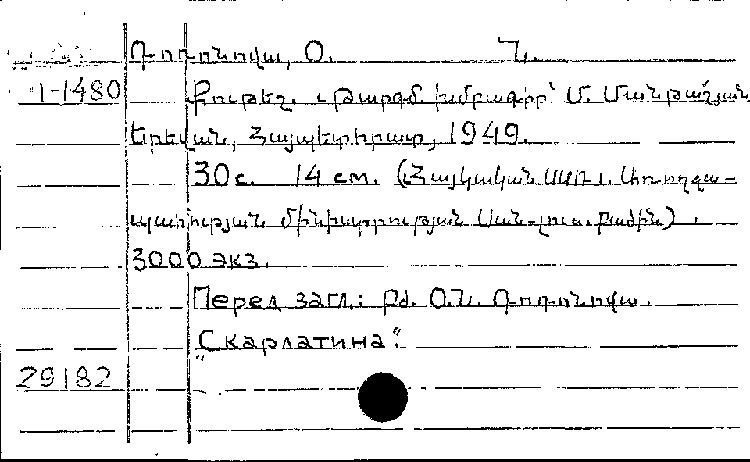 Դոդոնովա, Օ. Ն.
1-1480 Քութեշ. Թարգմ. խմբագիր՝ Մ. Մանթաշյան
Երևան, Հայպետհրատ, 1949.
30 с. 14 см. (Հայկական ՍՍՌ. Առողջա-
պահության մինիստրության Սան-լուս. բաժին).
3000 экз.
Перед загл.: Բժ. Օ.Ն. Դոդոնովա.
„Скарлатина“.
29182